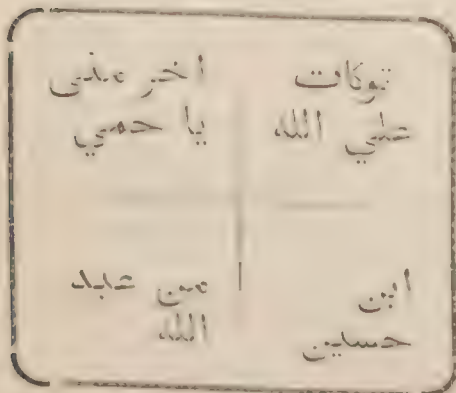 توكلت
علي الله
اخر منى
يا حمي
ابن
حسين
من عبد
الله